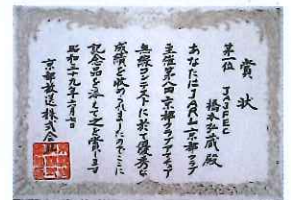 賞状
第一位 JA3FEC
橋本弘蔵殿
あなたはJARL京都クラブ
主催第八回京都クラブアマチュア
無線コンテストに於て優秀な
成績を収められましたのでここに
記念品を添えて之を賞します
昭和三十九年六月七日
京都放送株式会社